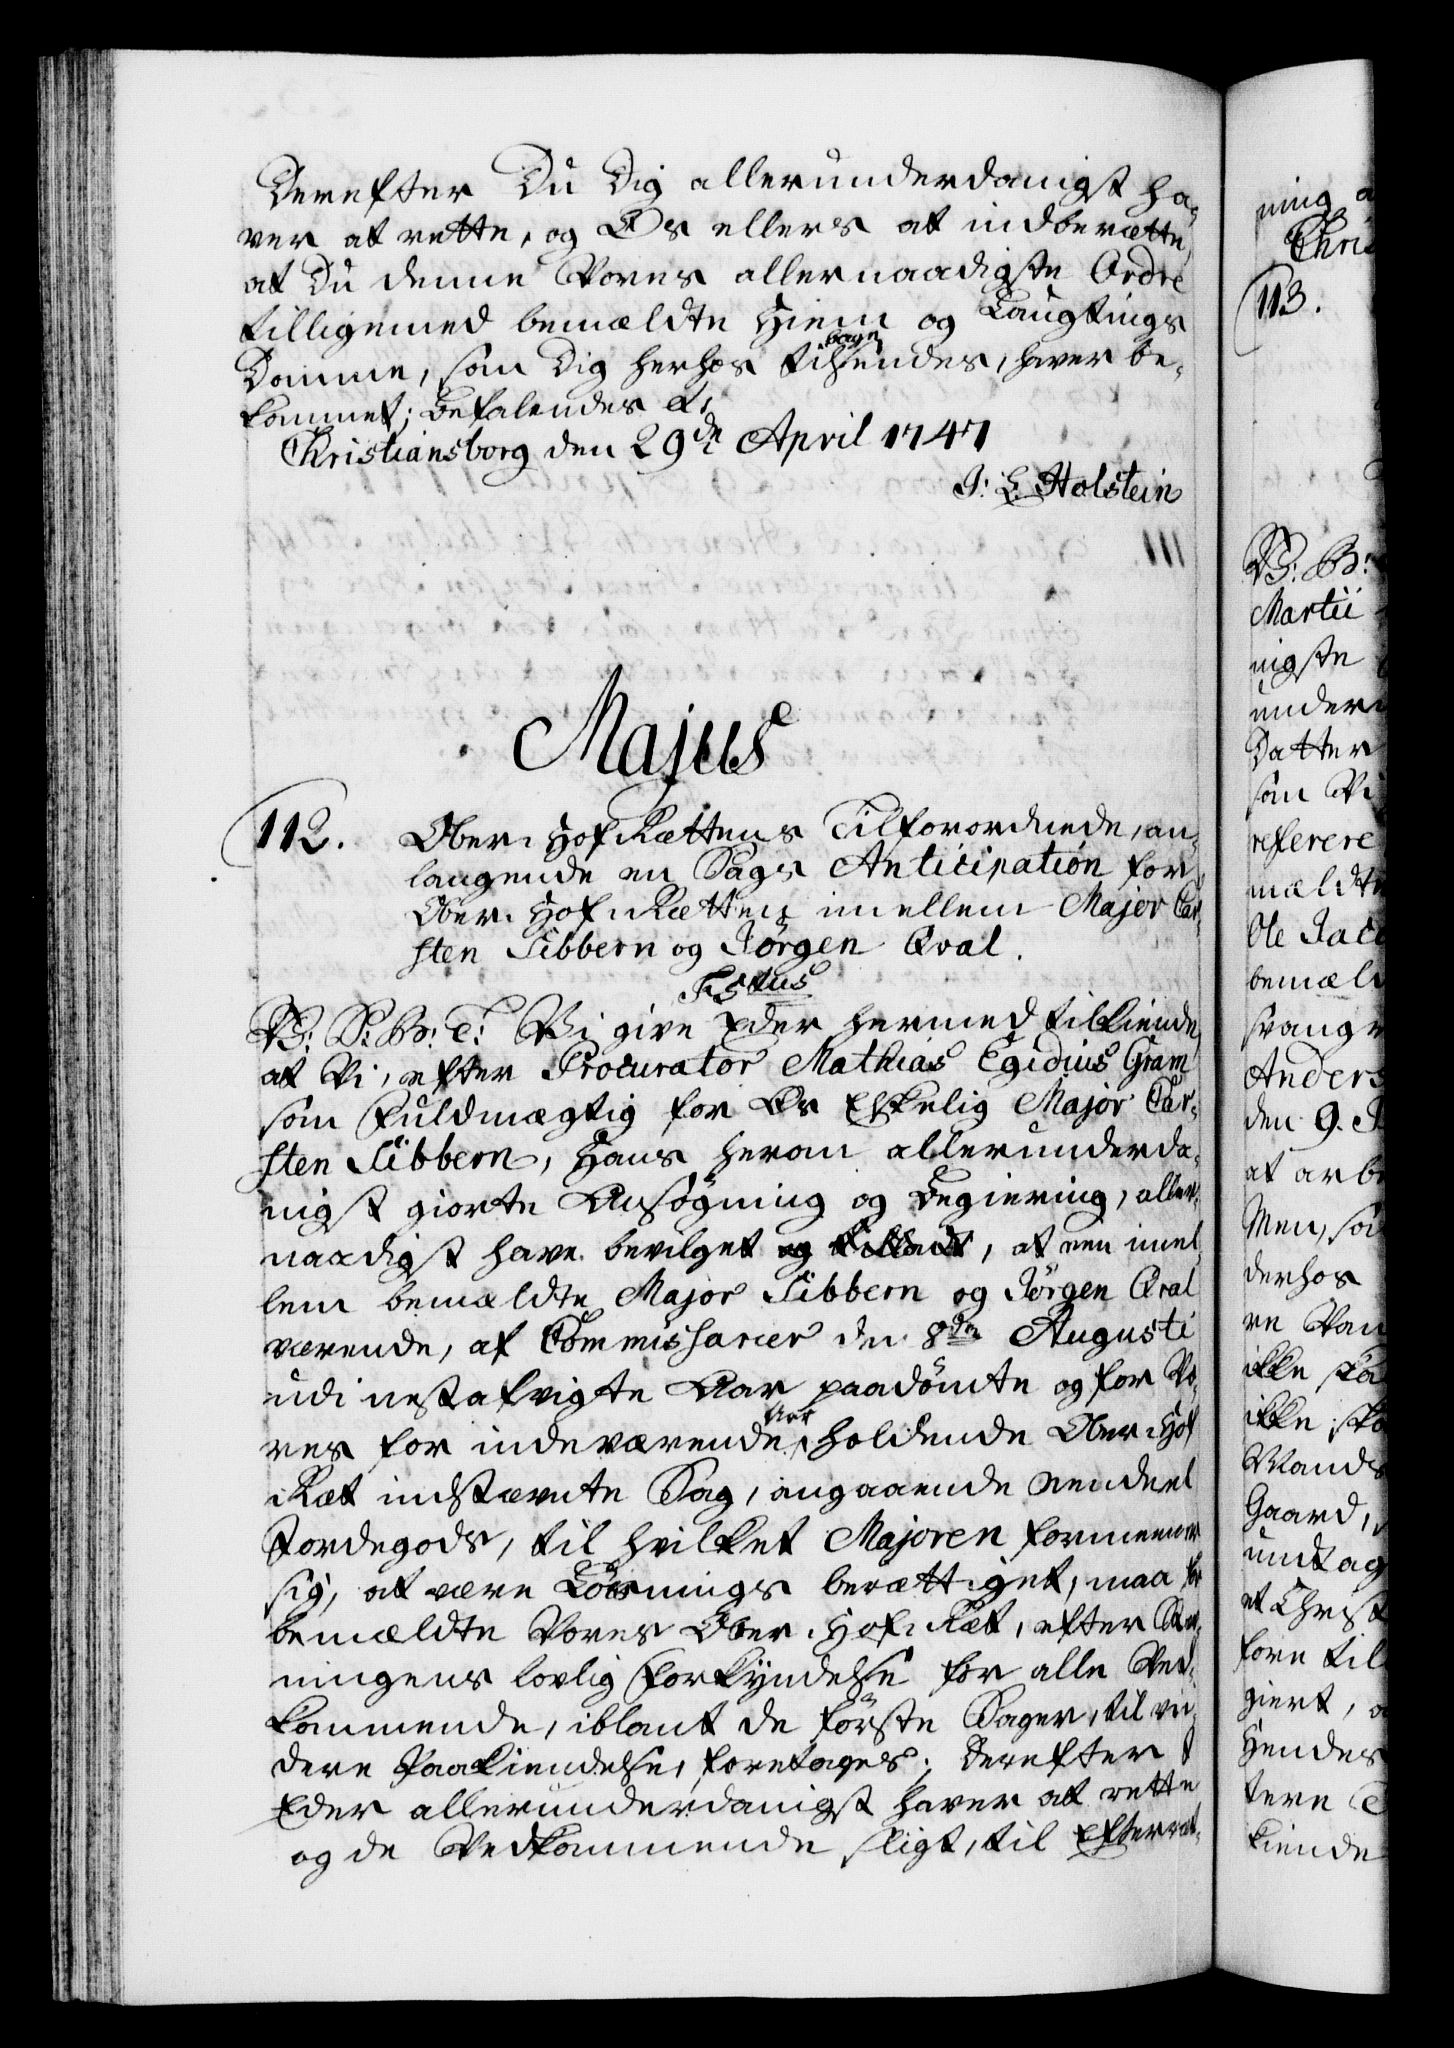 Derefter Du Dig allerunderdanigst ha-
ver at rette, og Os ellers at indberætte,
at Du denne Vores allernaadigste Ordre
tilligemed bemældte Hiem og Laugtings
Domme, som Dig herhos tilbage sendes, haver be-
kommet; Befalendes &c.
Christiansborg den 29de April 1747
J: L: Holstein
Majus
112.
Ober-Hof-Rættens Tilforordnede, an-
langende en Sags Anticipation for
Ober-Hof-Rætten imellem Major Car-
sten Sibbern og Jörgen Qval.
V: S: B: T: Vi give Eder hermed tilkiende
at Vi, efter Procurator Mathias Egidius Gram
som Fuldmægtig for Os Elskelig Major Car-
sten Sibbern, Hans herom allerunderda-
nigst giorte Ansögning og Begiering, aller-
naadigst have bevilget og tilladt, at een imel
lem bemældte Major Sibbern og Jörgen Qval
værende, af Commissarier den 8de Augusti
udi nestafvigte Aar paadömte og for Vo-
res for indeværende Aar holdende Ober-Hof
Ræt indstævnte Sag, angaaende eendeel
Jordegods, til hvilket Majoren formeener
sig, at være Lösnings berættiget, maa for
bemældte Vores Ober-Hof-Ræt, efter Stev-
ningens lovlig Forkyndelse for alle Ved-
kommende, iblant de förste Sager, til vii-
dere Paakiendelse, foretages; Derefter I
Eder allerunderdanigst haver at rette
og de Vedkommende sligt, til Efterret-
ning
Chri
113.
Martii
nigste
under
Datter
som Vi
referere
mældte
Ole Jac
bemæl
svang
Anders
den 9. J
at arb
Men, so
derhos
re Van
ikke ska
ikke sko
Mands
Gaard,
undtag
et Christ
fore til
giert,
Hendes
tere
kiende